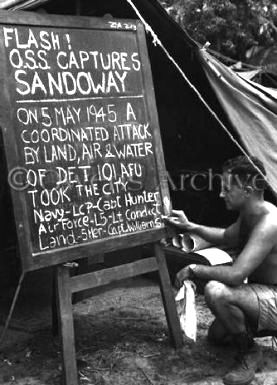 FLASH!
O.S.S. CAPTURES
SANDOWAY
ON 5 MAY 1945 A
COORDINATED ATTACK
BY LAND, AIR & WATER
OF DET. 101 AFU
TOOK THE CITY
Navy-LCP-Capt Hunter
Air Force-L5-Lt
Land-Ster-Capt. Williams